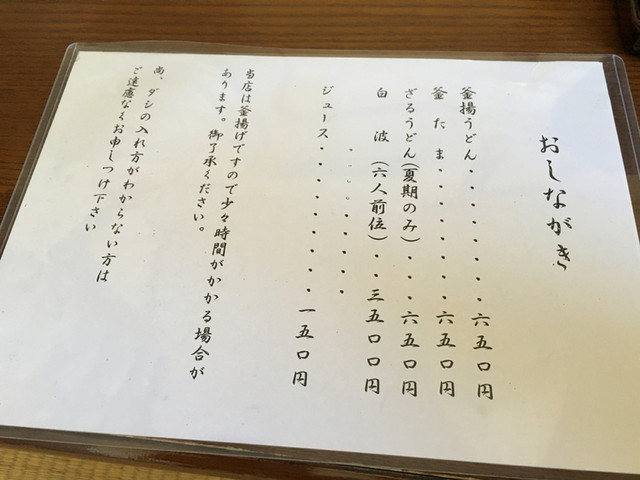 おしながき
釜揚うどん・・・・・・・六五〇円
釜たま・・・・・・・・・六五〇円
ざるうどん(夏期のみ)・・・・六五〇円
白波(六人前位)・・三五〇〇円
・・・・・・・・
ジュース・・・・・・・・・一五〇円
当店は釜揚げですので少々時間がかかる場合が
あります。御了承ください。
尚、ダシの入れ方がわからない方は
ご遠慮なくお申しつけ下さい